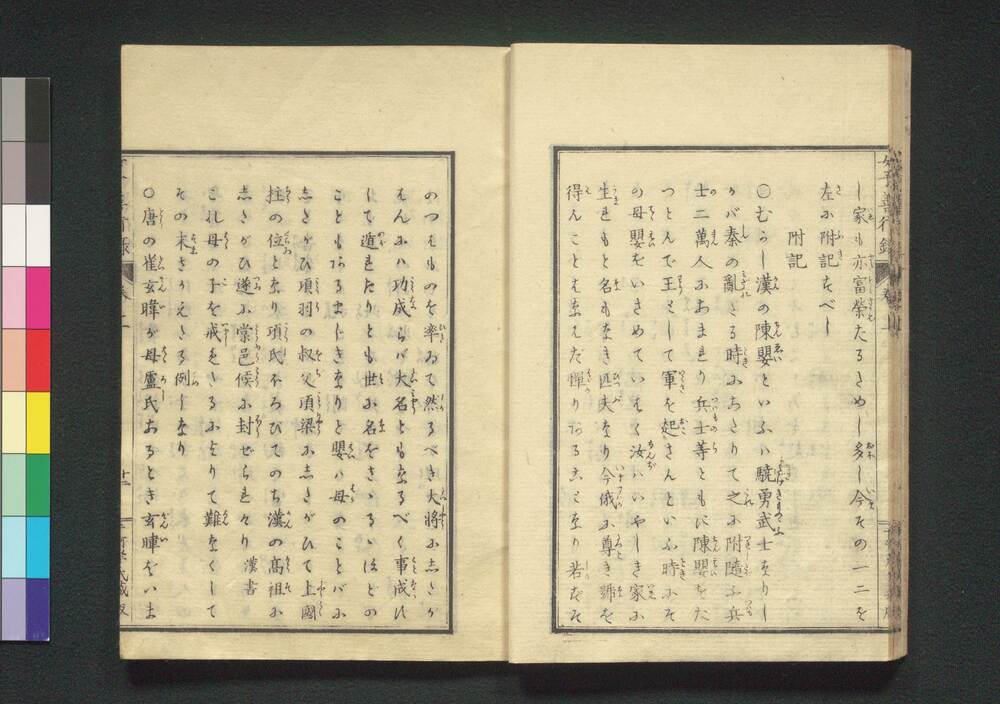 し家も亦富栄たるためし多し今その一二を
左に附記すべし
附記
〇むかし漢の陳嬰といふハ驍勇武士なりし
が秦の亂たる時にあたりて之に附隨ふ兵
士二萬人にあまれり兵士等ともに陳嬰をた
つとんで王として軍を起さんといふ時にそ
の母嬰をいさめていはく汝ハいやしき家に
生れもと名もなき匹夫なり今俄に尊き號を
得んことはなはだ憚りあることなり若かず
のつはものを率ゐて然るべき大將にしたが
はんにハ功成らバ大名ともなるべく事成ハ
して遁れたりとも世に名をさゝるゝほどの
こともあるまじきなりと嬰ハ母のことバに
したがひ項羽の叔父項梁にしたがひて上國
柱の位となり項氏ほろびてのち漢の高祖に
したがひ遂に棠邑候に封せられたり 漢書
これ母の子を戒めたるによりて難なくして
その末さかえたる例しなり
〇唐の崔玄暐が母盧氏あるとき玄暐をいま
十二